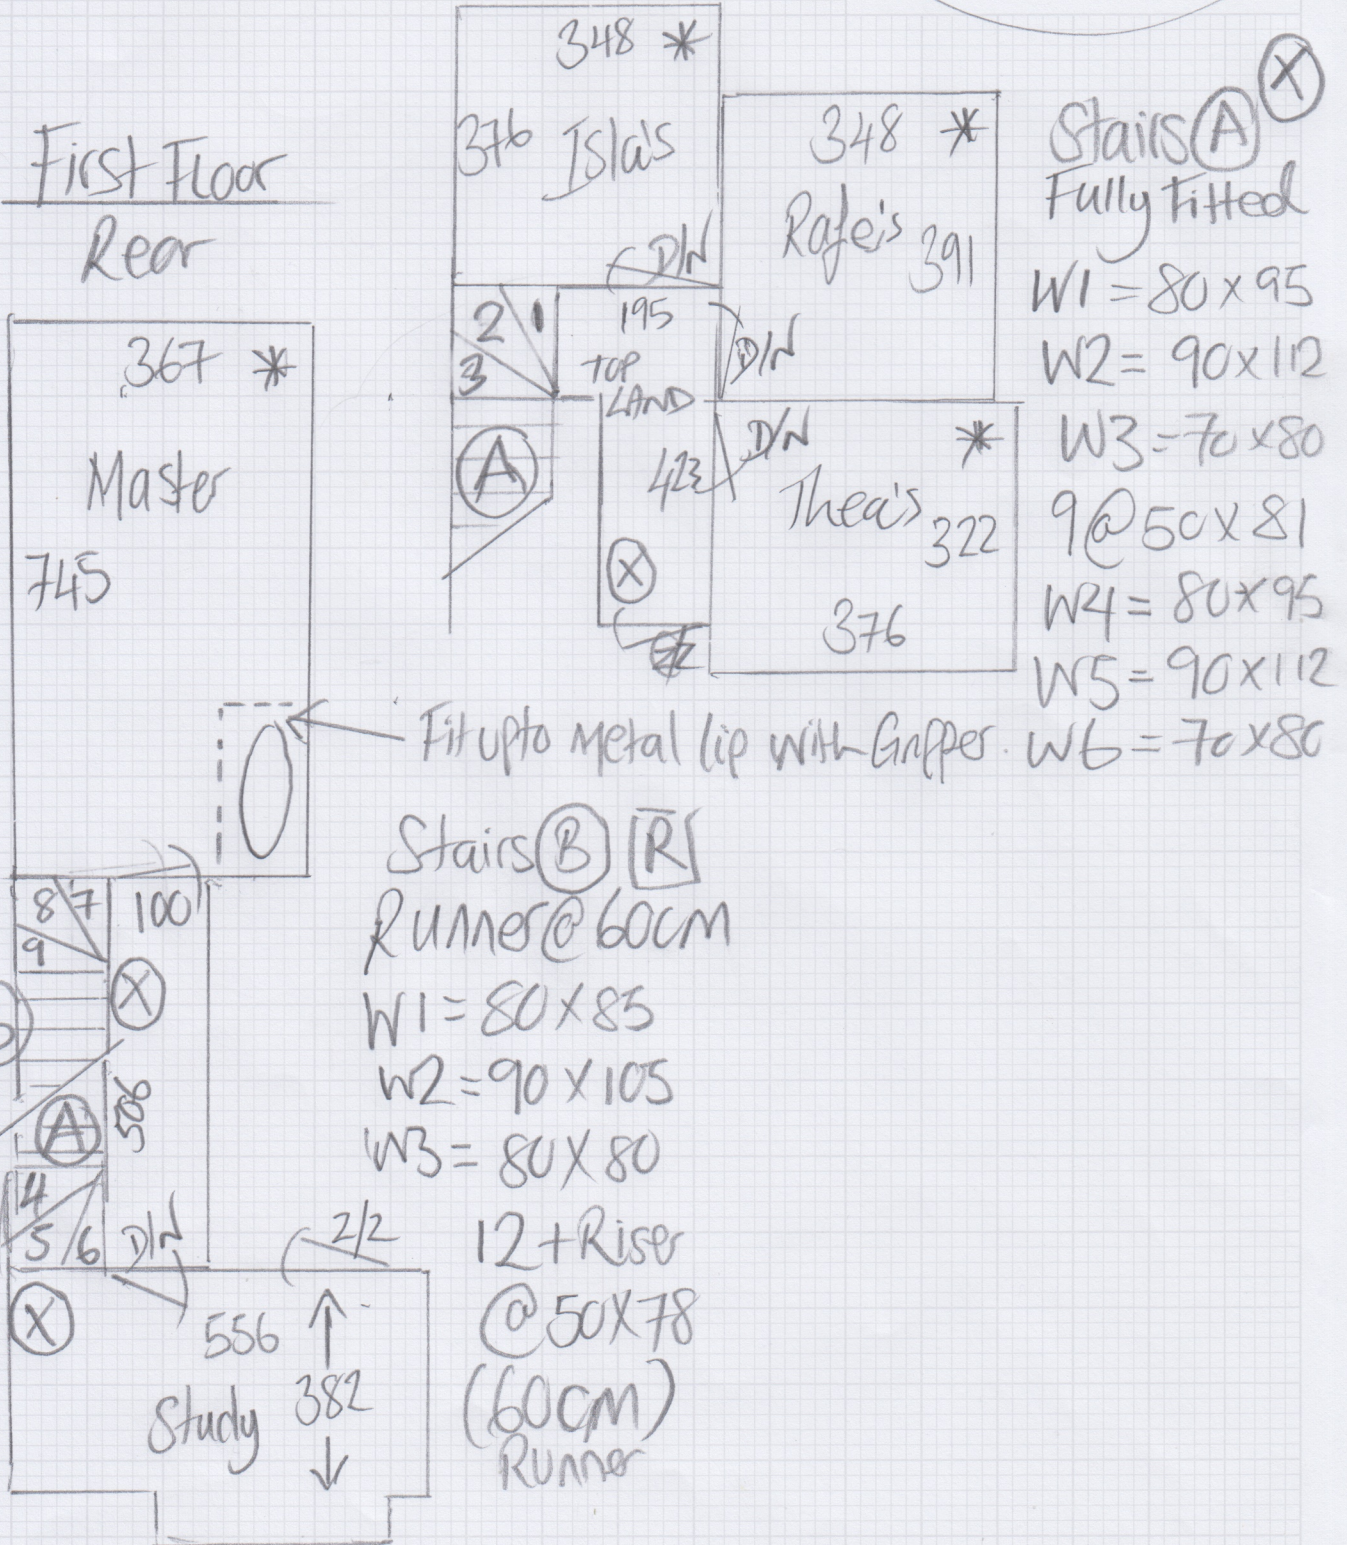 First Floor
Rear
367 *
Master
745
348 *
376 Isla's
D/N
348 *
Rafe's
391
D/N
2 1
3
195
TOP
LAND
423
A
X
D/N *
Thea's
322
376
Stairs A X
Fully Fitted
W1 = 80 x 95
W2 = 90 x 112
W3 = 70 x 80
9 @ 50 x 81
W4 = 80 x 95
W5 = 90 x 112
W6 = 70 x 80
Fit upto Metal lip with Gripper.
Stairs B R
Runner @ 60cm
W1 = 80 x 85
W2 = 90 x 105
W3 = 80 x 80
12 + Riser
@ 50 x 78
(60cm)
Runner
8 7
9
100
X
506
A
4
5 / 6
D/N
2/2
X
556
382
Study